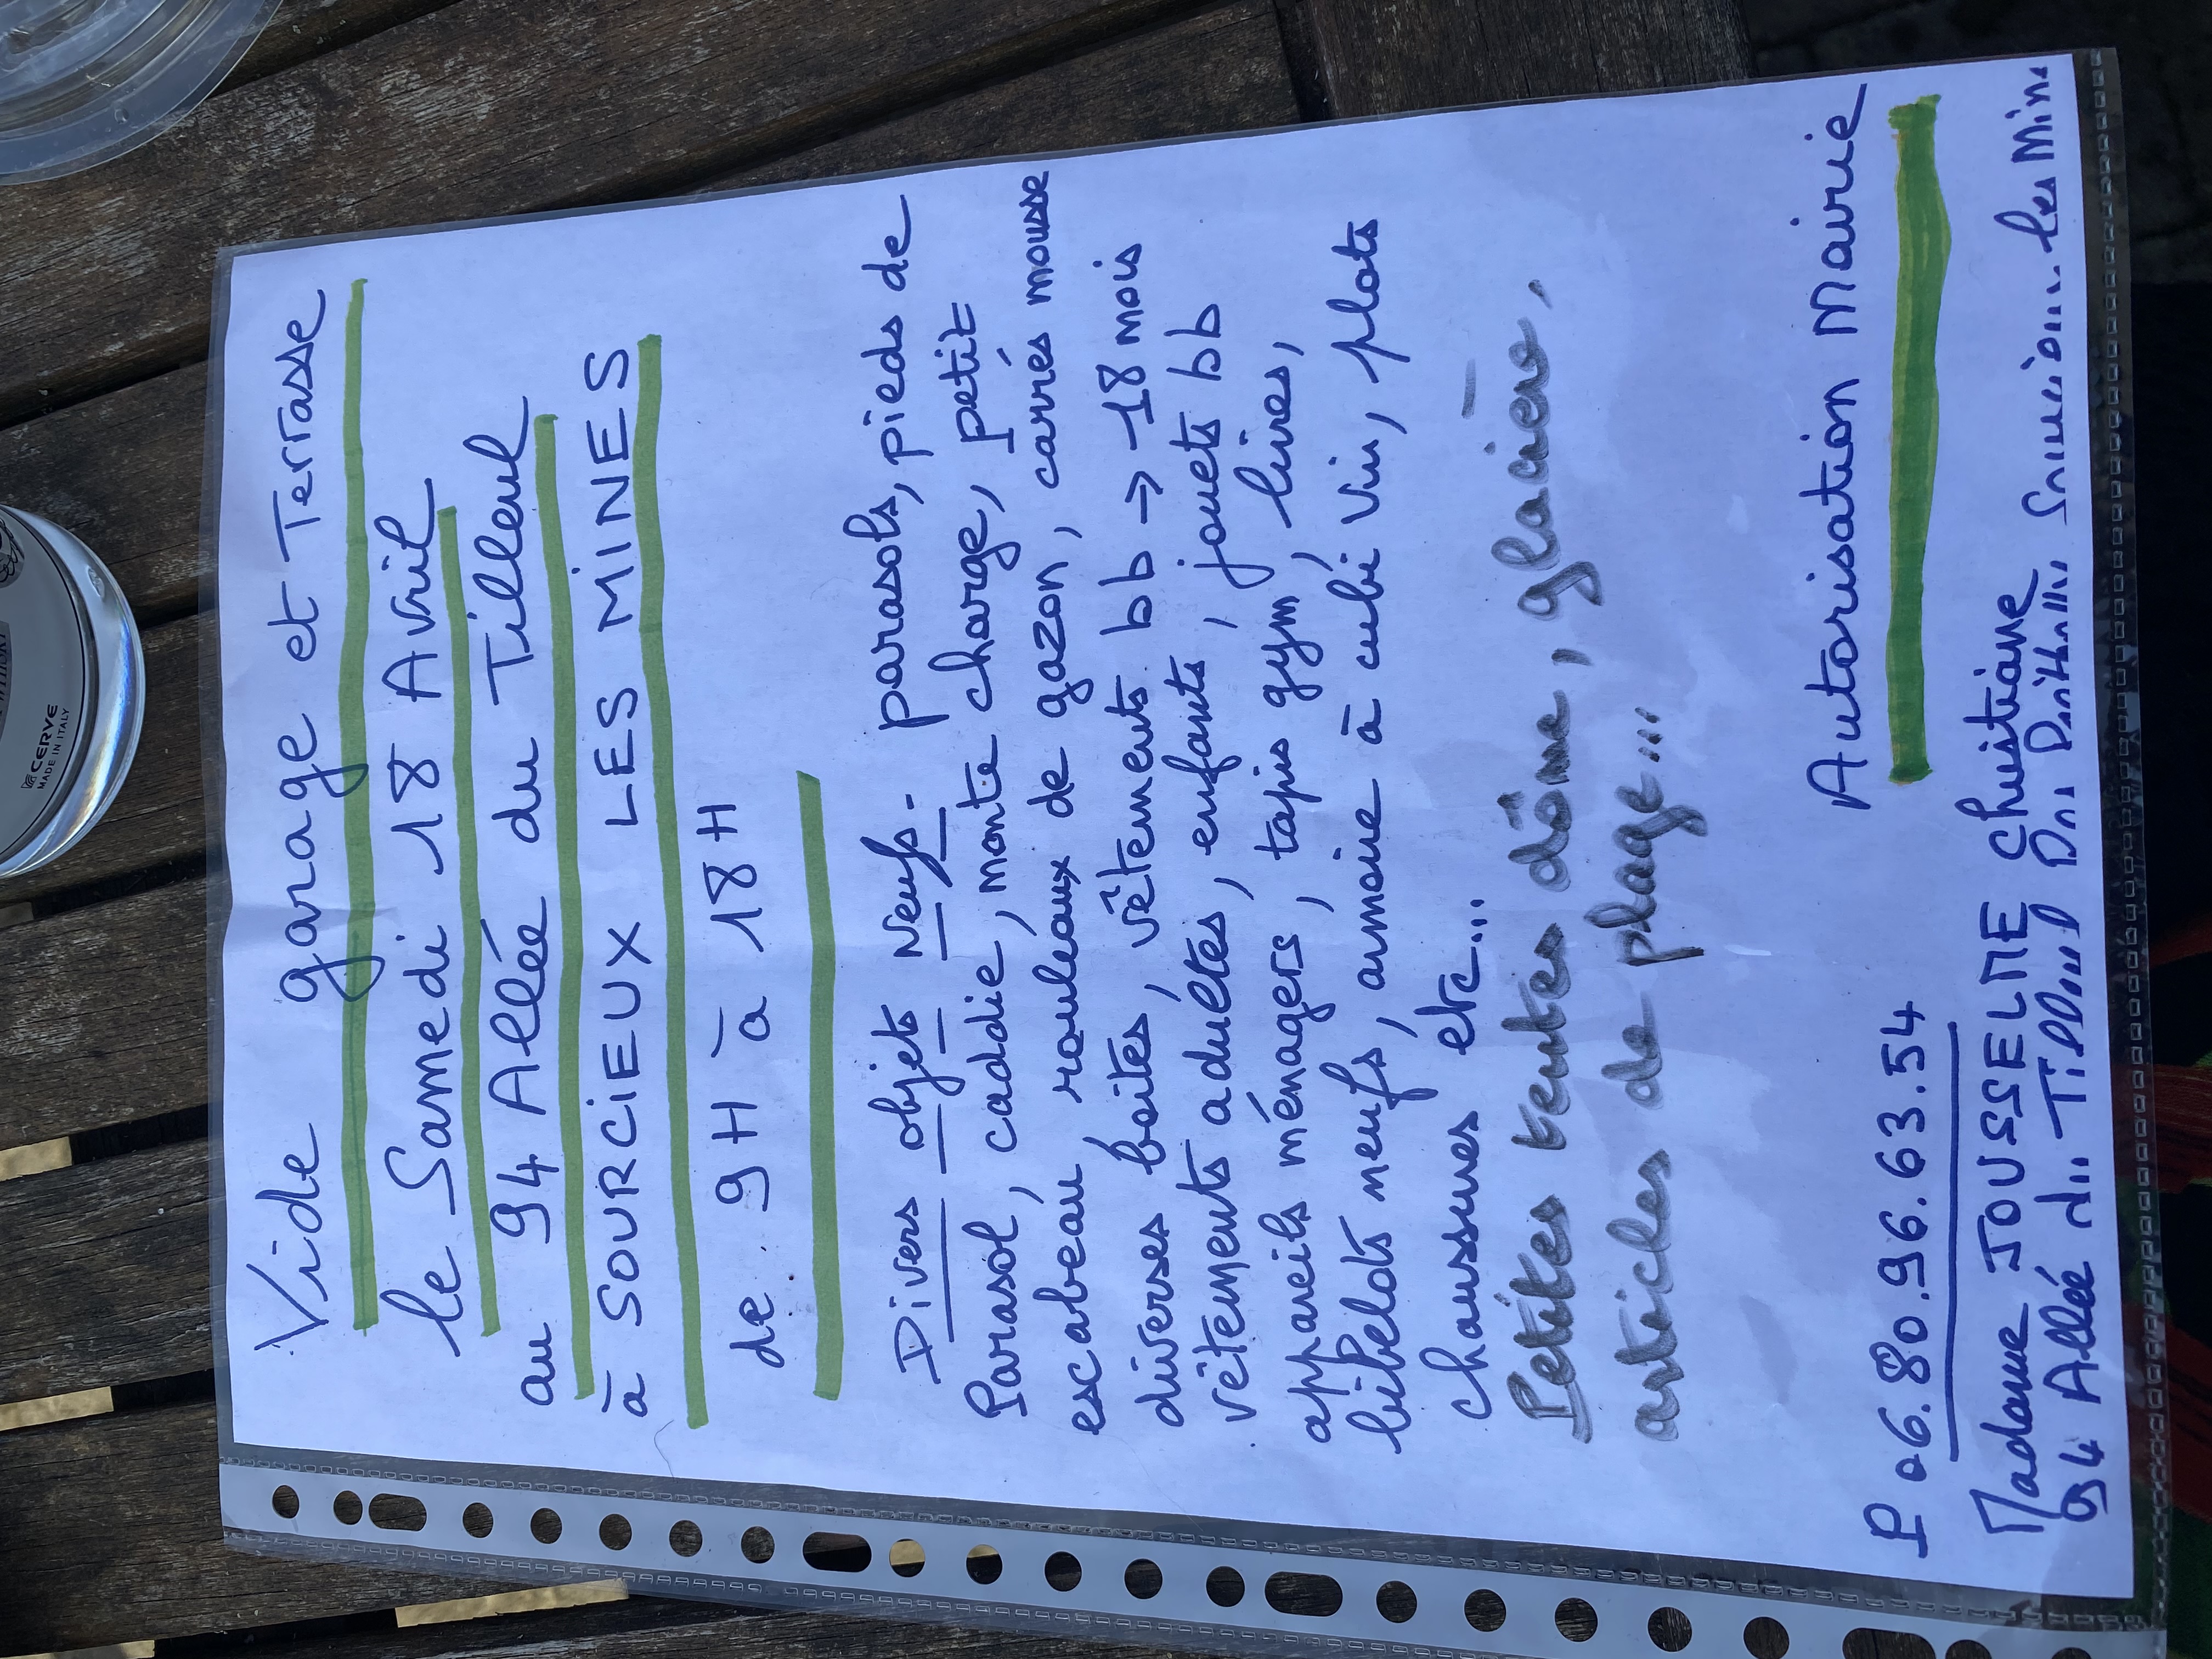 Vide garage et Terrasse
le Samedi 18 Avril
au 94 Allée du Tilleul
à SOURCIEUX LES MINES
de 9H à 18H
Divers objets Neufs - parasols, pieds de
Parasol, caddie, monte charge, petit
escabeau, rouleaux de gazon, carrés mousse
diverses boites, vêtements bb → 18 mois
vêtements adultes, enfants, jouets bb
appareils ménagers, tapis gym, livres,
bibelots neufs, armoire à cubi vin, plots
chaussures etc...
Petites tentes dôme, glacière,
articles de plage...
Autorisation Mairie
P 06.80.96.63.54
Madame JOUSSELME Christiane
94 Allée du Tilleul les Min
CERVE
MADE IN ITALY